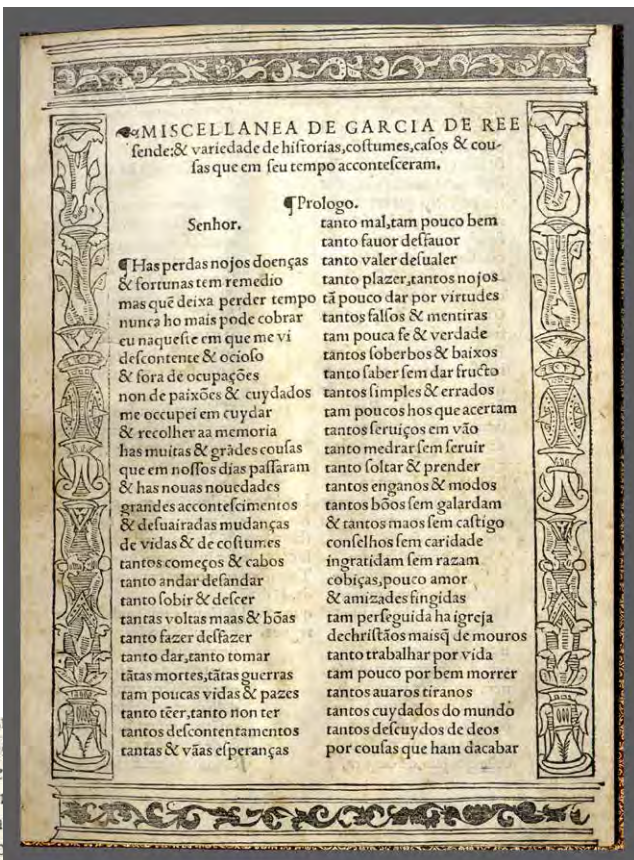 MISCELLANEA DE GARCIA DE REE
ſende:& variedade de hiſtorias,coſtumes,caſos & cou-
ſas que em ſeu tempo acconteſceram.
¶Prologo.
Senhor.
¶Has perdas nojos doenças
& fortunas tem remedio
mas quē deixa perder tempo
nunca ho mais pode cobrar
eu naqueſte em que me vi
deſcontente & ocioſo
& fora de ocupações
non de paixões & cuydados
me occupei em cuydar
& recolher aa memoria
has muitas & grādes couſas
que em noſſos dias paſſaram
& has nouas nouedades
grandes acconteſcimentos
& deſuairadas mudanças
de vidas & de coſtumes
tantos começos & cabos
tanto andar deſandar
tanto ſobir & deſcer
tantas voltas maas & bōas
tanto fazer deſfazer
tanto dar,tanto tomar
tātas mortes,tātas guerras
tam poucas vidas & pazes
tanto tēer,tanto non ter
tantos deſcontentamentos
tantas & vāas eſperanças
tanto mal,tam pouco bem
tanto fauor deſfauor
tanto valer deſualer
tanto plazer,tantos nojos
tā pouco dar por virtudes
tantos falſos & mentiras
tam pouca fe & verdade
tantos ſoberbos & baixos
tanto ſaber ſem dar fructo
tantos ſimples & errados
tam poucos hos que acertam
tantos ſeruiços em vão
tanto medrar ſem ſeruir
tanto ſoltar & prender
tantos enganos & modos
tantos bōos ſem galardam
& tantos maos ſem caſtigo
conſelhos ſem caridade
ingratidam ſem razam
cobiças,pouco amor
& amizades fingidas
tam perſeguida ha igreja
dechriſtãos maisq̄ de mouros
tanto trabalhar por vida
tam pouco por bem morrer
tantos auaros tiranos
tantos cuydados do mundo
tantos deſcuydos de deos
por couſas que ham dacabar